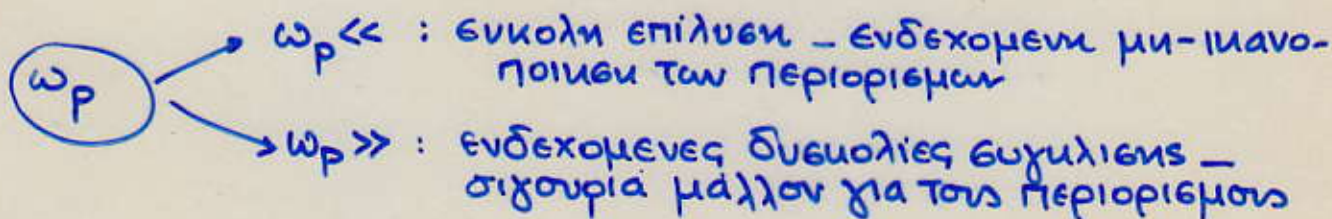 ω_p << : ευκολη επίλυση – ενδεχομενη μη-ικανο-
ποιηση των περιορισμων
ω_p
ω_p >> : ενδεχομενες δυσκολίες συγκλισης –
σιγουριά μάλλον για τους περιορισμους